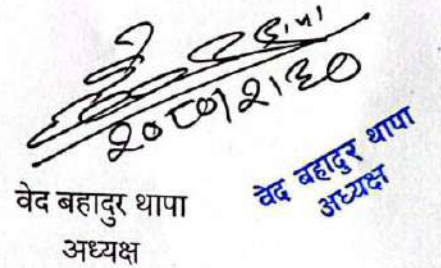 थापा
२०८०।२।३०
वेद बहादुर थापा
अध्यक्ष
वेद बहादुर थापा
अध्यक्ष